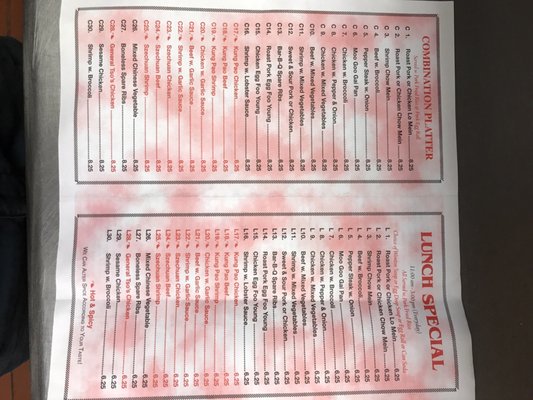 COMBINATION PLATTER
C 1. Roast Pork or Chicken Lo Mein 8.25
C 2. Roast Pork or Chicken Chow Mein 8.25
C 3. Shrimp Chow Mein 8.25
C 4. Beef w. Broccoli 8.25
C 5. Pepper Steak w. Onion 8.25
C 6. Moo Goo Gai Pan 8.25
C 7. Chicken w. Broccoli 8.25
C 8. Chicken w. Pepper & Onion 8.25
C 9. Chicken w. Mixed Vegetables 8.25
C10. Beef w. Mixed Vegetables 8.25
C11. Shrimp w. Mixed Vegetables 8.25
C12. Sweet & Sour Pork or Chicken 8.25
C13. Bar-B-Q Spare Ribs 8.25
C14. Roast Pork Egg Foo Young 8.25
C15. Chicken Egg Foo Young 8.25
C16. Shrimp w. Lobster Sauce 8.25
C17. Kung Pao Chicken 8.25
C18. Kung Pao Beef 8.25
C19. Kung Pao Shrimp 8.25
C20. Chicken w. Garlic Sauce 8.25
C21. Beef w. Garlic Sauce 8.25
C22. Shrimp w. Garlic Sauce 8.25
C23. Szechuan Chicken 8.25
C24. Szechuan Beef 8.25
C25. Szechuan Shrimp 8.25
C26. Mixed Chinese Vegetable 8.25
C27. Boneless Spare Ribs 8.25
C28. General Tso's Chicken 8.25
C29. Sesame Chicken 8.25
C30. Shrimp w. Broccoli 8.25
LUNCH SPECIAL
L 1. Roast Pork or Chicken Lo Mein 6.25
L 2. Roast Pork or Chicken Chow Mein 6.25
L 3. Shrimp Chow Mein 6.25
L 4. Beef w. Broccoli 6.25
L 5. Pepper Steak w. Onion 6.25
L 6. Moo Goo Gai Pan 6.25
L 7. Chicken w. Broccoli 6.25
L 8. Chicken w. Pepper & Onion 6.25
L 9. Chicken w. Mixed Vegetables 6.25
L10. Beef w. Mixed Vegetables 6.25
L11. Shrimp w. Mixed Vegetables 6.25
L12. Sweet & Sour Pork or Chicken 6.25
L13. Bar-B-Q Spare Ribs 6.25
L14. Roast Pork Egg Foo Young 6.25
L15. Chicken Egg Foo Young 6.25
L16. Shrimp w. Lobster Sauce 6.25
L17. Kung Pao Chicken 6.25
L18. Kung Pao Beef 6.25
L19. Kung Pao Shrimp 6.25
L20. Chicken w. Garlic Sauce 6.25
L21. Beef w. Garlic Sauce 6.25
L22. Shrimp w. Garlic Sauce 6.25
L23. Szechuan Chicken 6.25
L24. Szechuan Beef 6.25
L25. Szechuan Shrimp 6.25
L26. Mixed Chinese Vegetable 6.25
L27. Boneless Spare Ribs 6.25
L28. General Tso's Chicken 6.25
L29. Sesame Chicken 6.25
L30. Shrimp w. Broccoli 6.25
Hot & Spicy
We Can Alter Spice According to Your Taste!